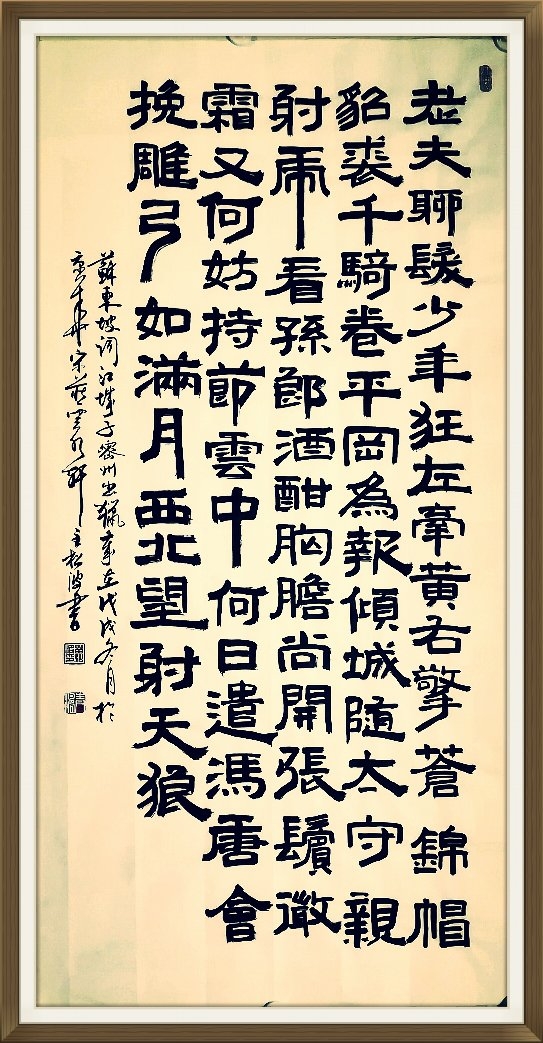 老夫聊髮少年狂左牽黃右擎蒼錦帽
貂裘千騎卷平岡為報傾城隨太守親
射虎看孫郎酒酣胸膽尚開張鬢微
霜又何妨持節雲中何日遣馮唐會
挽雕弓如滿月西北望射天狼
蘇東坡詞江城子密州出獵歲在戊戌冬月於
京華軒主松波書